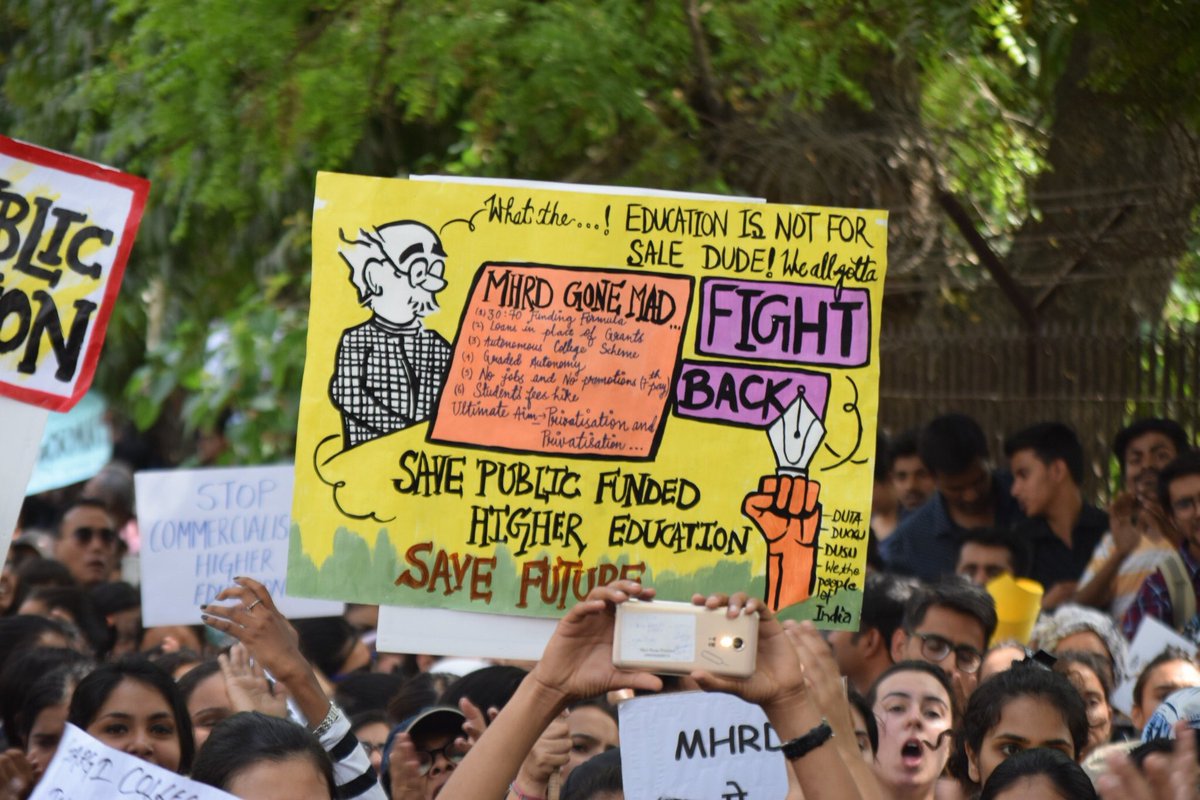 BLIC
ON
STOP
COMMERCIALIS
HIGHER
What the...! EDUCATION IS NOT FOR
SALE DUDE! We all gotta
FIGHT
BACK
MHRD GONE MAD...
(1) 30:70 Funding Formula
(2) Loans in place of Grants
(3) Autonomous College Scheme
(4) Graded Autonomy
(5) No jobs and No promotions (7th pay)
(6) Students fees hike
Ultimate Aim→Privatisation and
Privatisation...
SAVE PUBLIC FUNDED
HIGHER EDUCATION
SAVE FUTURE
DUTA
DUCKU
DUSU
We the
people
of
India
MHRD